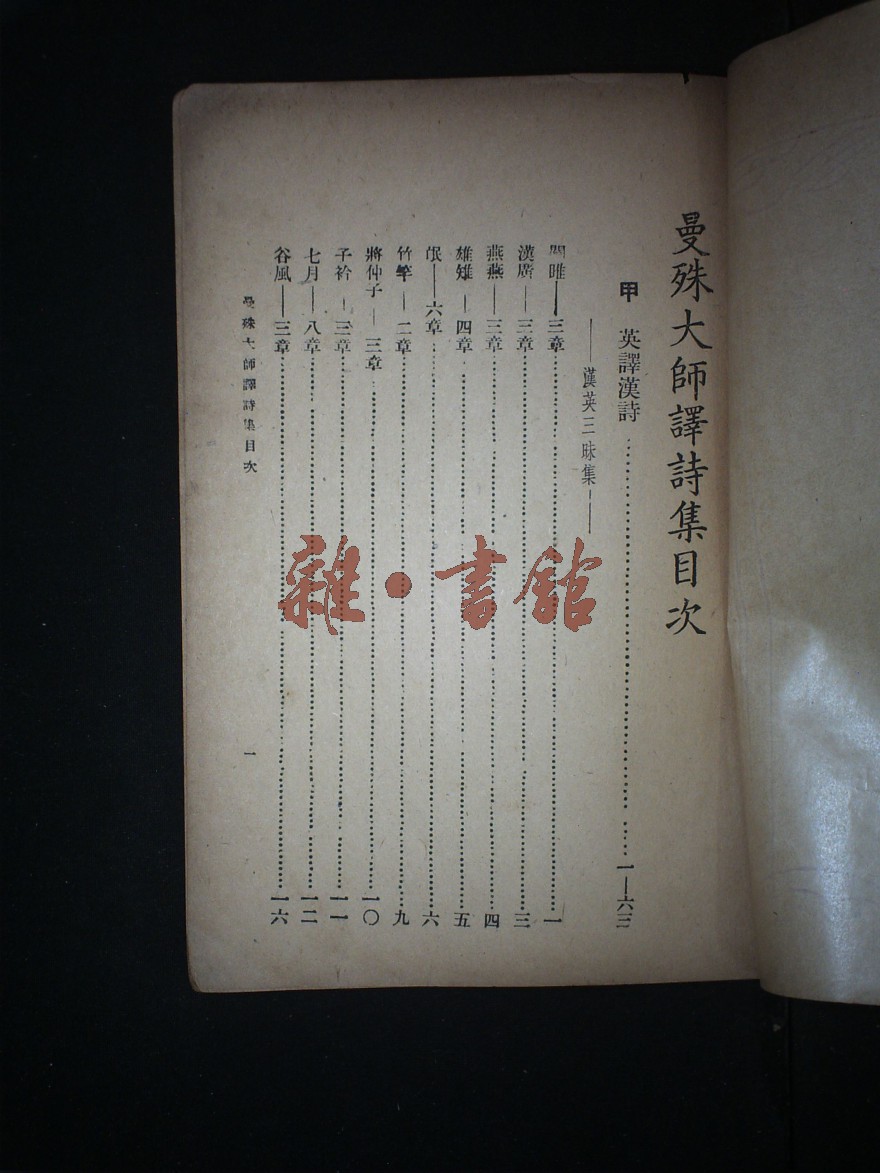 曼殊大師譯詩集目次
甲 英譯漢詩……一—六三
——漢英三昧集——
關雎——三章……一
漢廣——三章……三
燕燕——三章……四
雄雉——四章……五
氓——六章……六
竹竿——二章……九
將仲子——三章……一〇
子衿——三章……一一
七月——八章……一二
谷風——三章……一六
曼殊大師譯詩集目次
一
雜·書館